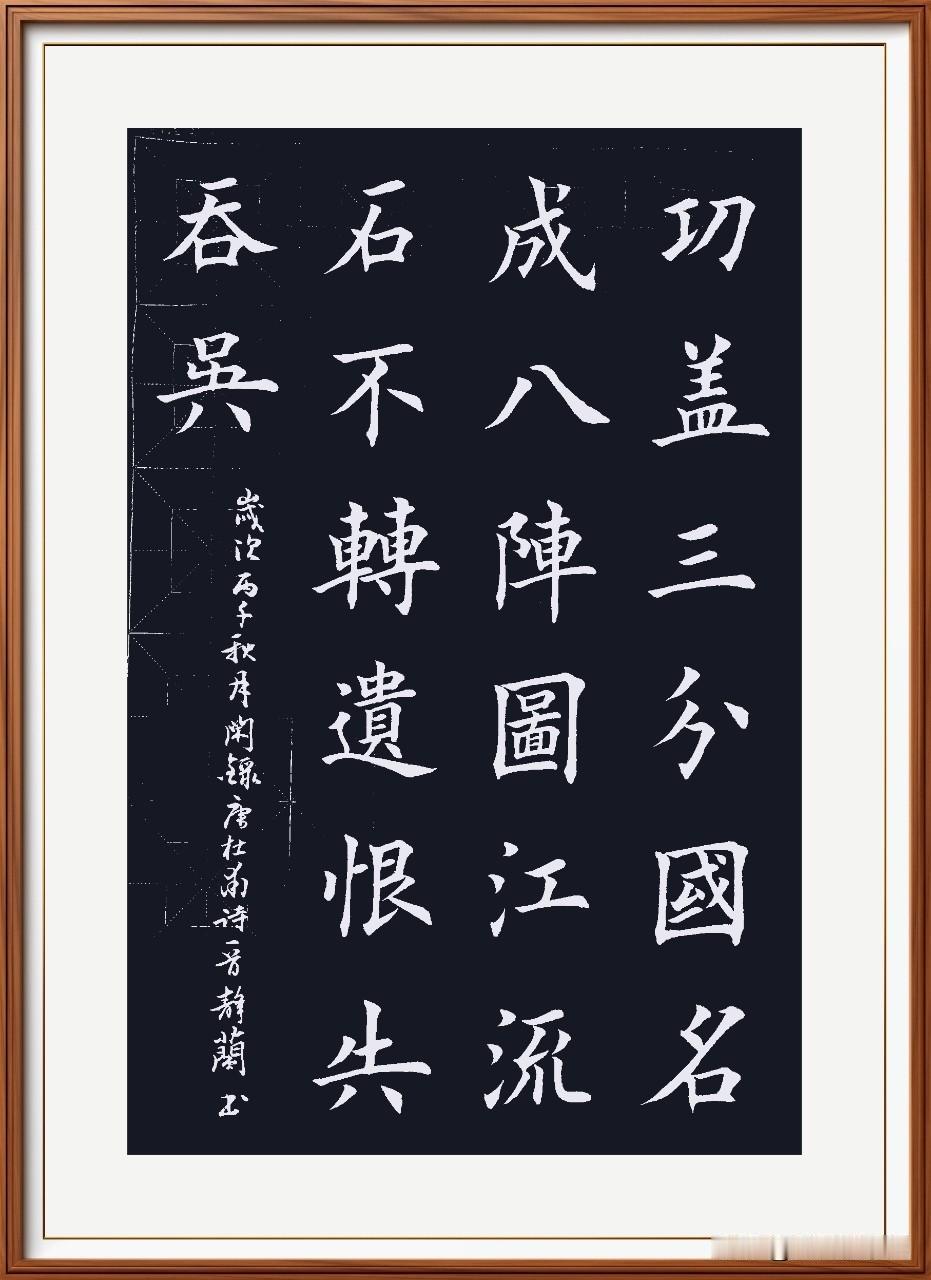 功盖三分國名
成八陣圖江流
石不轉遺恨失
吞吳
歲次丙午秋月閑錄唐杜甫詩一首靜蘭书